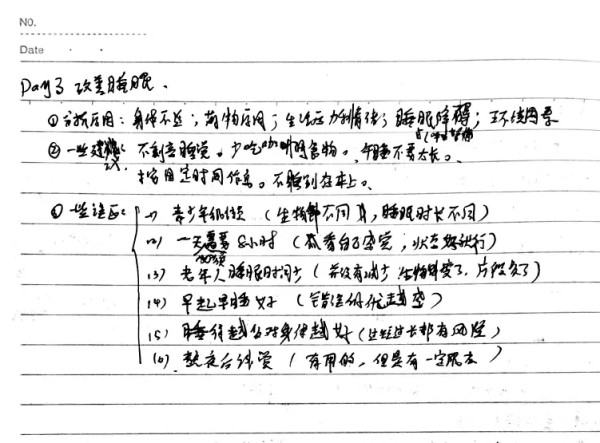 N0.
Date . .
Day3 改善睡眠.
①分析原因：身体不适；药物原因；生活压力和情绪；睡眠障碍；环境因素
②一些建议： 不刻意睡觉。少吃咖啡的食物。午睡不要太长。
半小时
按固定时间作息。不赖到在床上。
① 一些误区：
(1) 青少年(生物钟不同,睡眠时长不同)
(2) 一天需要8小时 (看自己感觉；状态好就行)
必须
(3) 老年人睡眠时间少 (并没有减少 生物钟变了，片段多了)
(4) 早起早睡好 (
(5) 睡得越久对身体越好(过短过长都有风险)
(6) 熬夜后补觉 (有用的，但是有一定)